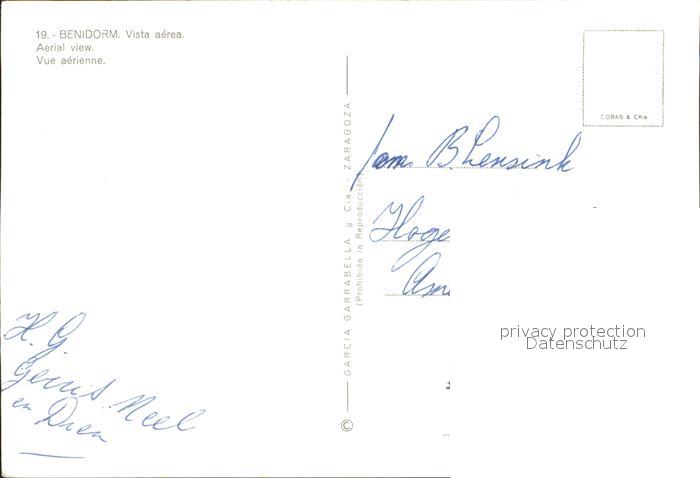 19. - BENIDORM. Vista aérea.
Aerial view.
Vue aérienne.
COBAS & Cía
GARCIA GARRABELLA y Cía. - ZARAGOZA
(Prohibida la Reproducción)
Fam. B. Lensink
Hoge
Am
H. G.
Gerrid. Neel
en Dien
©
privacy protection
Datenschutz